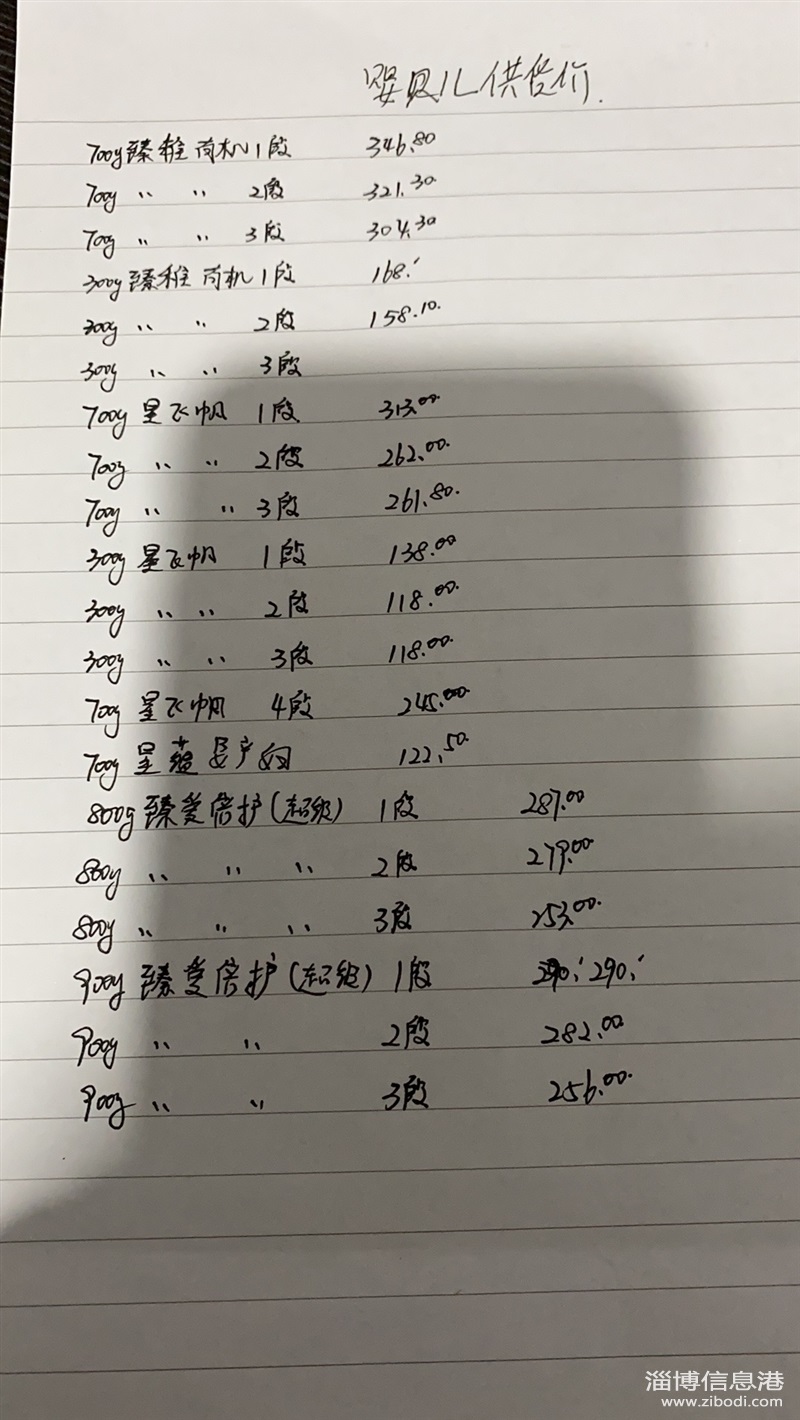 婴贝儿供货价.
700g臻稚有机1段 346.80
700g 〃 〃 2段 321.30
700g 〃 〃 3段 304.30
300g臻稚有机1段 168.
300g 〃 〃 2段 158.10
300g 〃 〃 3段
700g 星飞帆 1段 313.00
700g 〃 〃 2段 262.00
700g 〃 〃 3段 261.80
300g 星飞帆 1段 138.00
300g 〃 〃 2段 118.00
300g 〃 〃 3段 118.00
700g 星飞帆 4段 245.00
700g 星蕴 产妇 122.50
800g 臻爱倍护(超级) 1段 287.00
800g 〃 〃 〃 2段 279.00
800g 〃 〃 〃 3段 253.00
900g 臻爱倍护(超级) 1段 290.
900g 〃 〃 2段 282.00
900g 〃 〃 3段 256.00
淄博信息港
www.zibodi.com